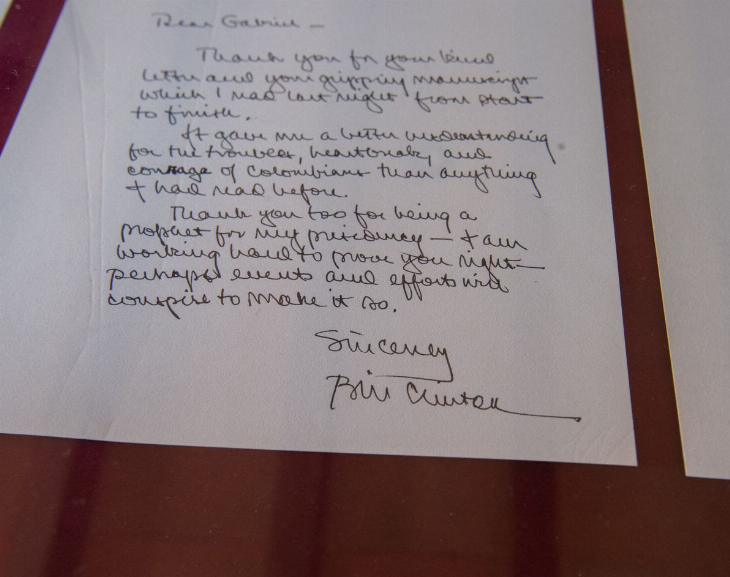 Dear Gabriel —
Thank you for your kind
letter and your gripping manuscript
which I read last night from start
to finish.
It gave me a better understanding
for the troubles, heartbreak, and
courage of Colombians than anything
I had read before.
Thank you too for being a
prophet for my presidency — I am
working hard to prove you right —
perhaps events and efforts will
conspire to make it so.
Sincerely
Bill Clinton